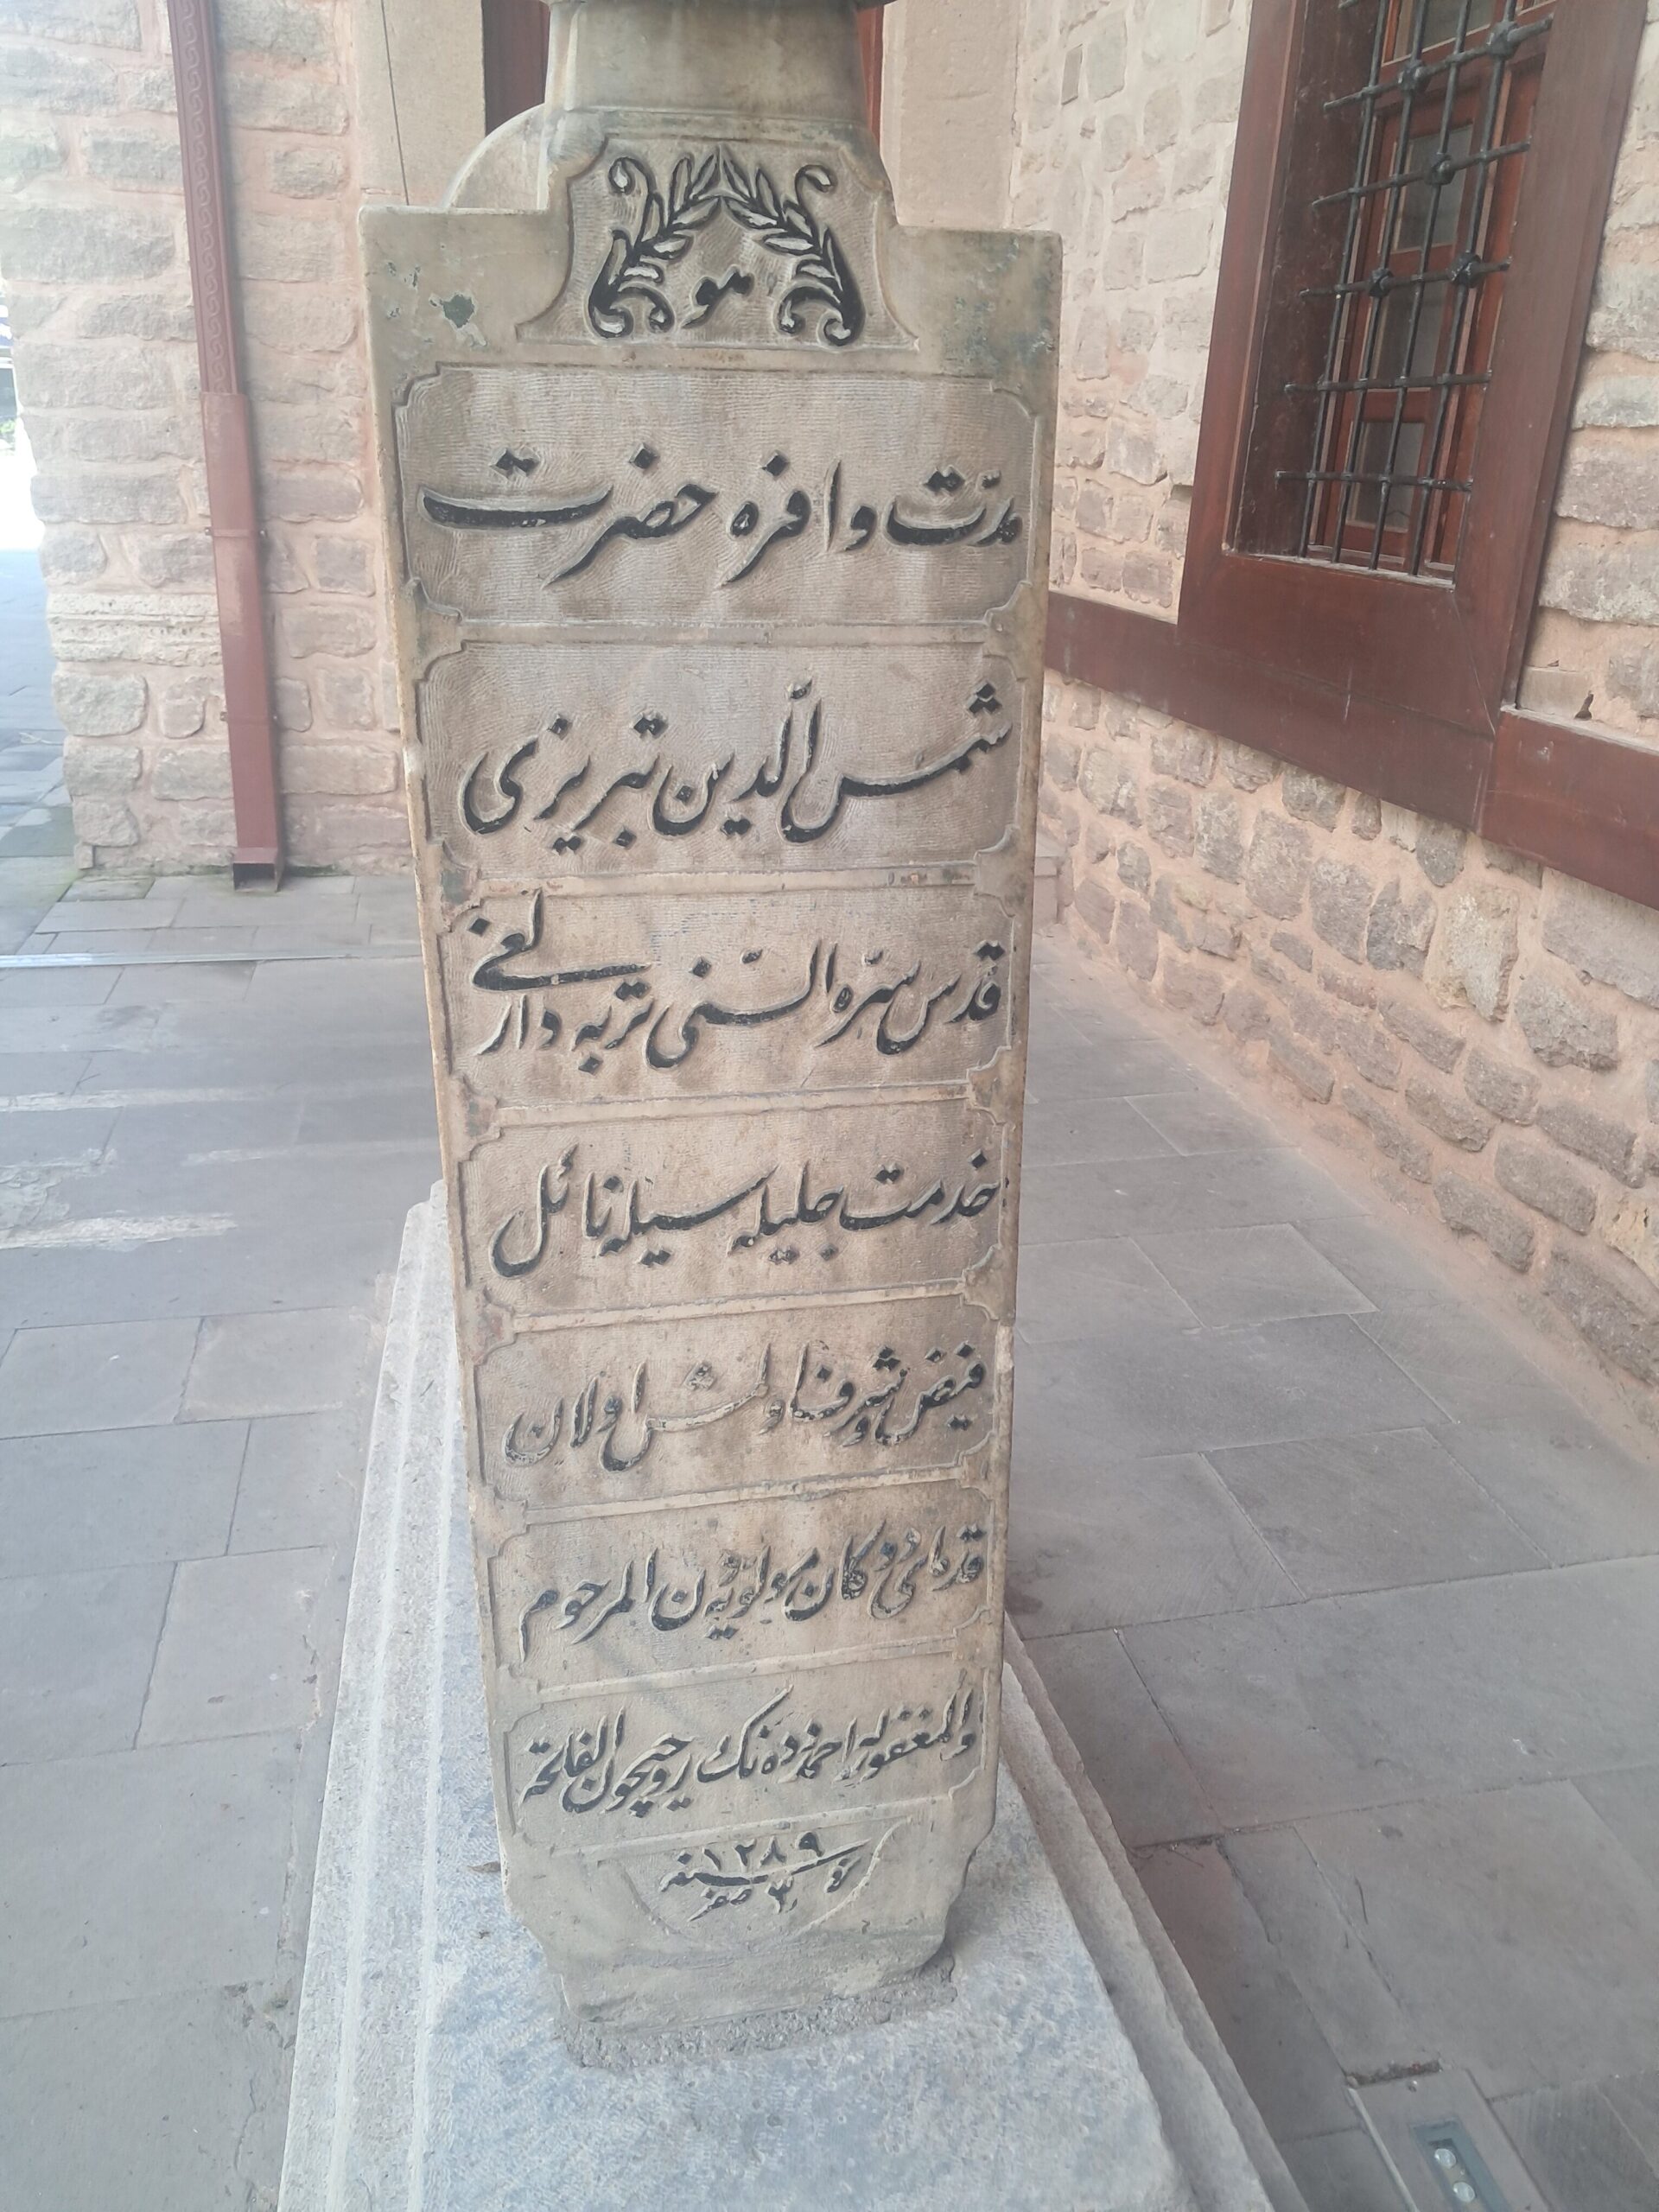 هو
مدّت وافره حضرت
شمس الدّين تبريزى
قدّس سرّه السّنى تربه دارلغى
خدمت جليله سيله نائل
فيض و شرف اولمش اولان
قدماى دكان مولويّه ن المرحوم
والمغفورله احمد دده نك روحيچون الفاتحه
سنه ١٢٨٩
٣ صفر